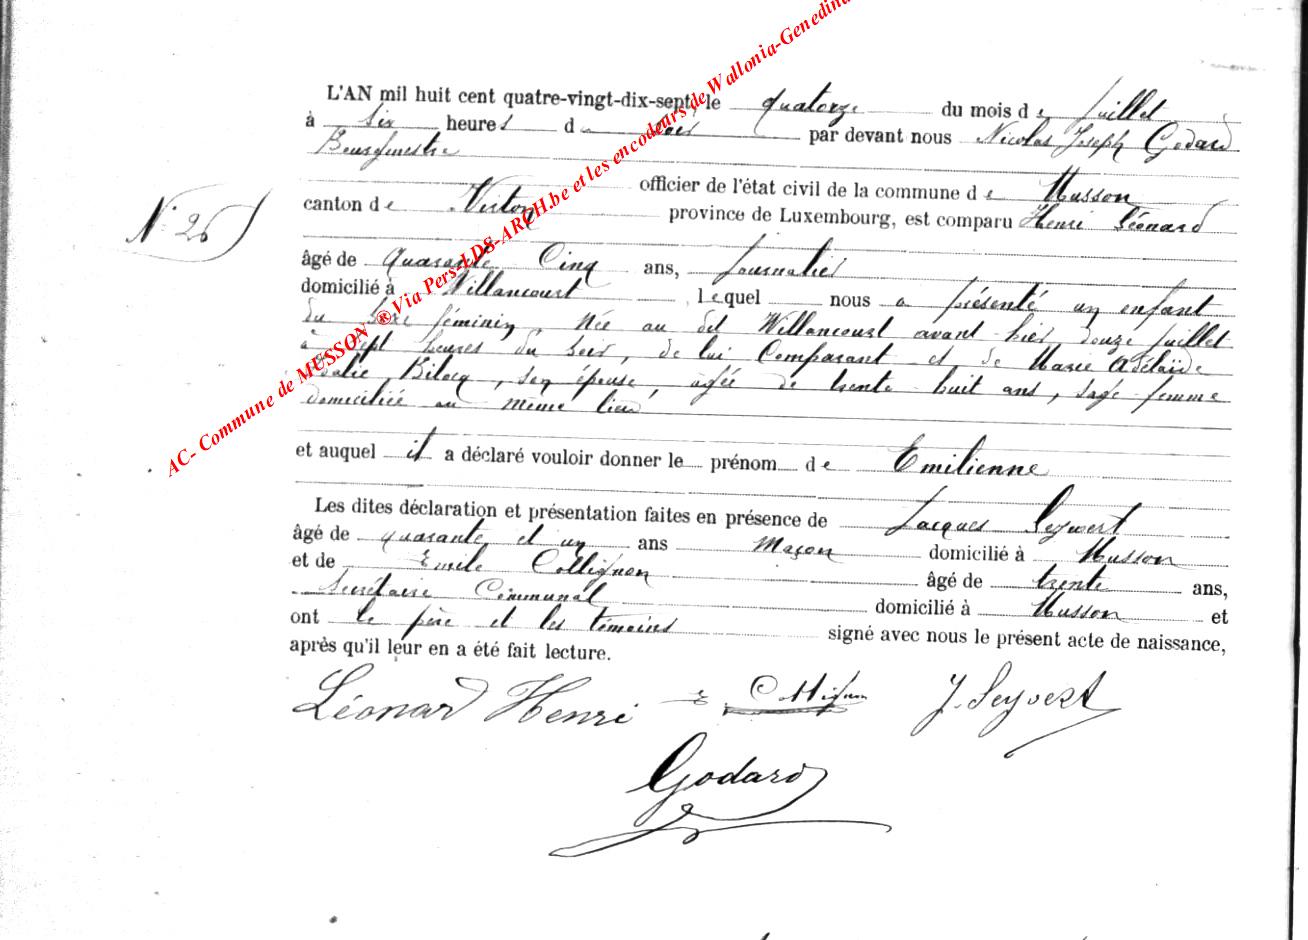 L'AN mil huit cent quatre-vingt-dix-sept, le quatorze du mois de juillet
à six heures du soir par devant nous Nicolas Joseph Godard
Bourgmestre
officier de l'état civil de la commune de Musson
N° 26
canton de Virton province de Luxembourg, est comparu Henri Léonard
âgé de quarante Cinq ans, journalier
domicilié à Willancourt, lequel nous a présenté un enfant
du sexe féminin, née au dit Willancourt avant hier, douze juillet
à sept heures du soir, de lui Comparant et de Marie Adélaïde
, son épouse, âgée de trente huit ans, sage-femme
domiciliée au même lieu
et auquel il a déclaré vouloir donner le prénom de Emilienne
Les dites déclaration et présentation faites en présence de Jacques Seywert
âgé de quarante et un ans maçon domicilié à Musson
et de Emile Collignon âgé de trente ans,
Secrétaire Communal domicilié à Musson et
ont le père et les témoins signé avec nous le présent acte de naissance,
après qu'il leur en a été fait lecture.
Léonard Henri E Collignon J. Seywert
Godard
AC- Commune de MUSSON ® Via Pers-LDS-ARCH.be et les encodeurs de Wallonia-Genedina